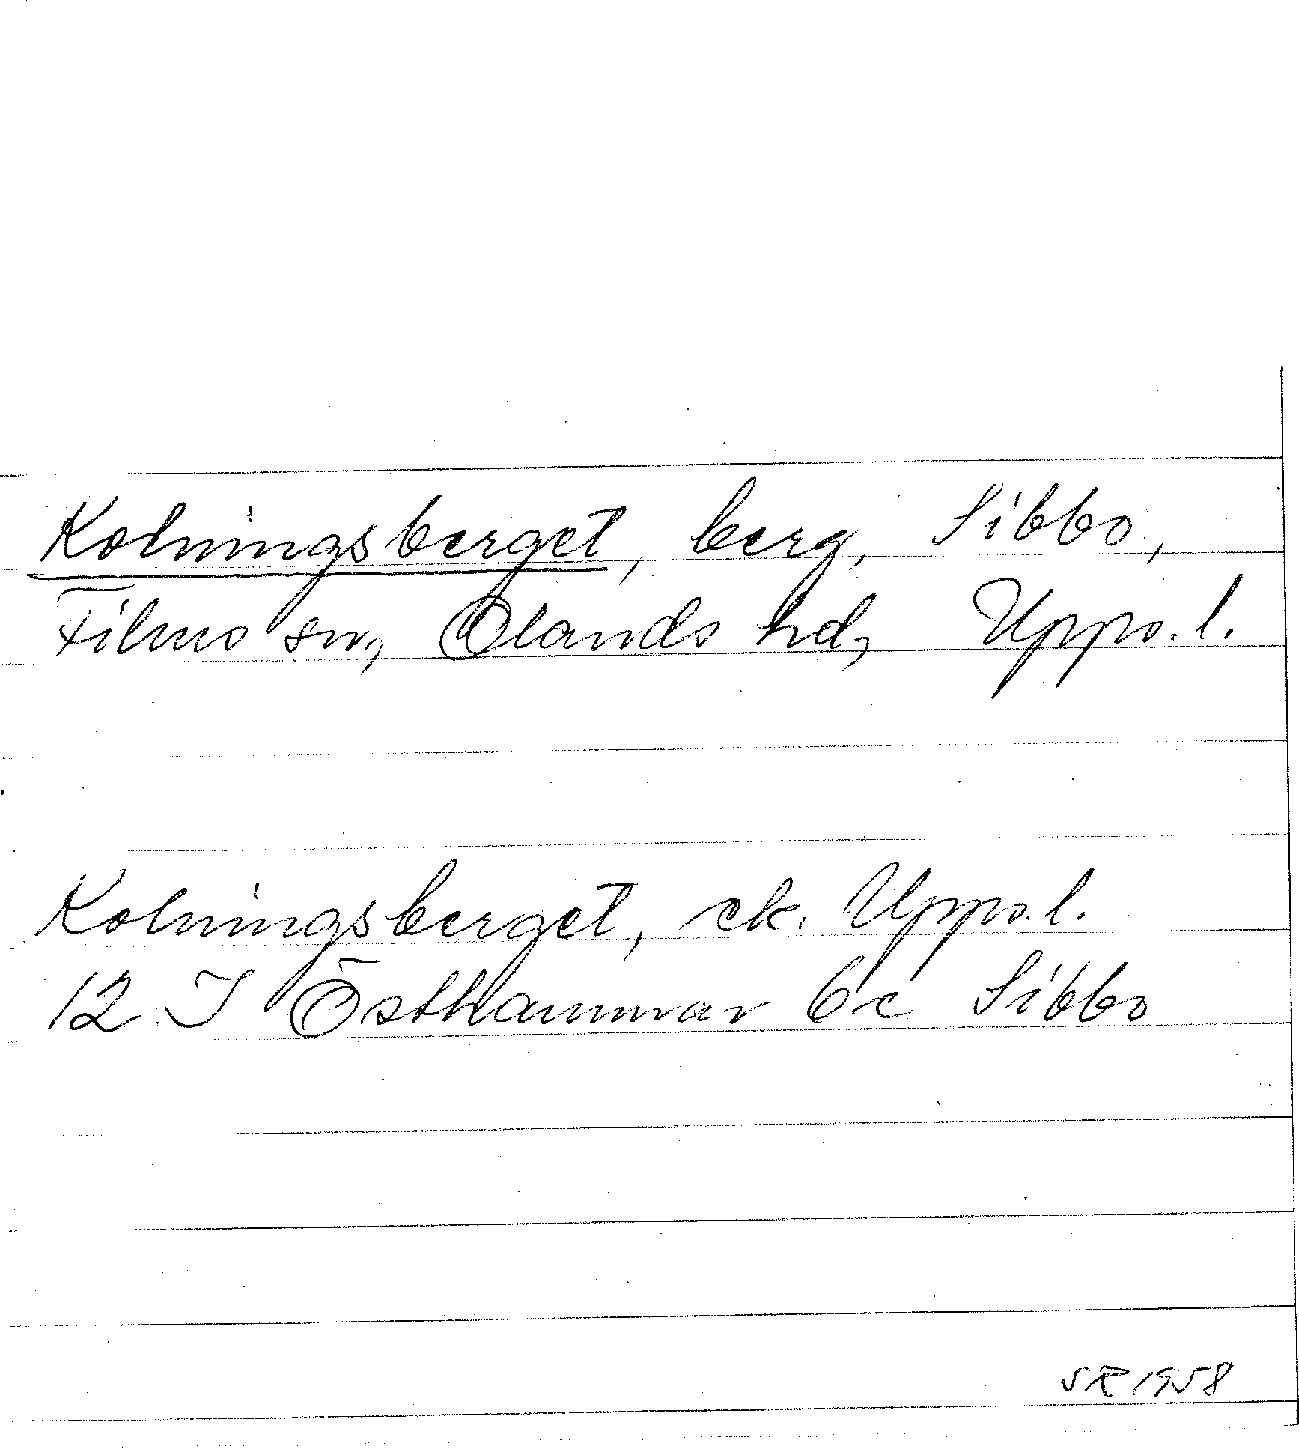 Kolningsberget, berg, Sibbo,
Films sn, Olands hd, Upps. l.
Kolningsberget, ek. Upps. l.
12 I Östhammar 6 c Sibbo
SR 1958